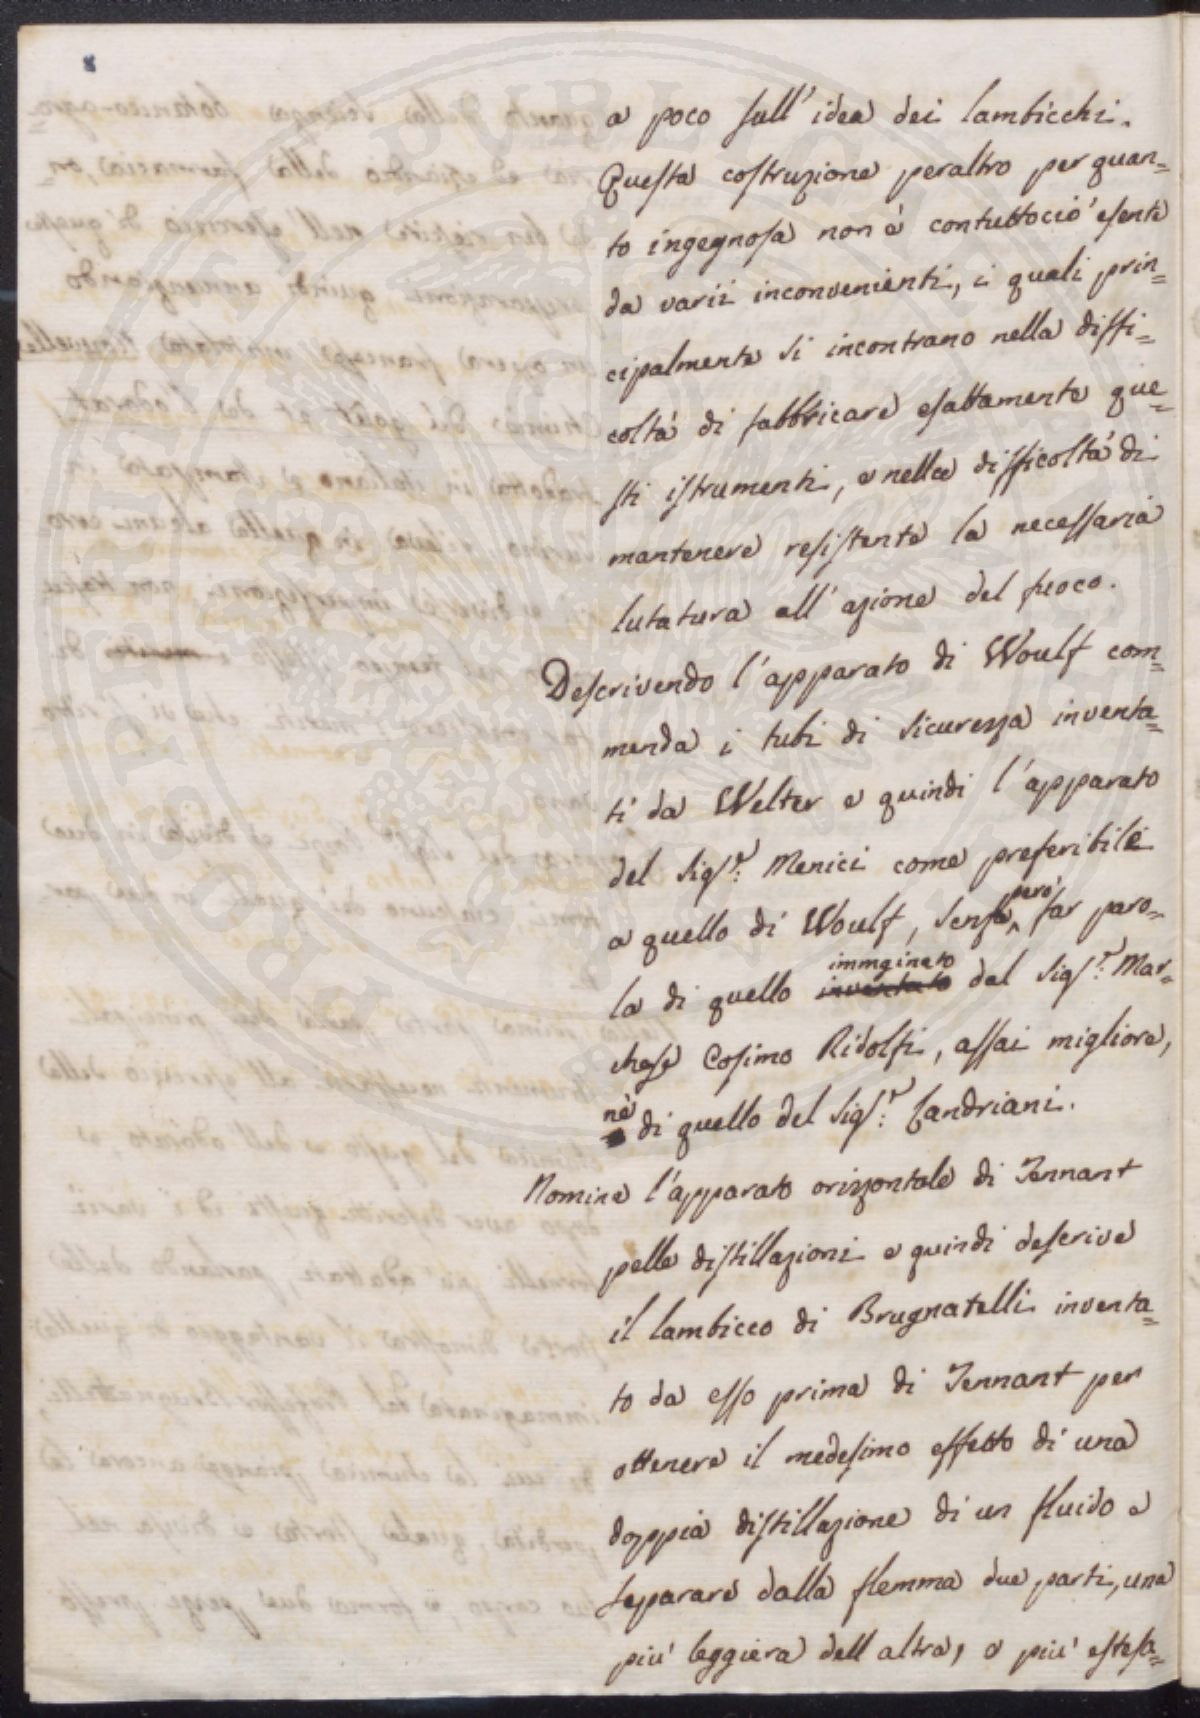 8
a poco sull'idea dei lambicchi.
Questa costruzione peraltro per quan=
to ingegnosa non è contuttociò esente
da varii inconvenienti, i quali prin=
cipalmente si incontrano nella diffi=
coltà di fabbricare esattamente que=
sti istrumenti, e nella difficoltà di
mantenere resistente la necessaria
lutatura all'azione del fuoco.
Descrivendo l'apparato di Woulf com=
menda i tubi di sicurezza inventa=
ti da Welter e quindi l'apparato
del Sig.r Menici come preferibile
a quello di Woulf, senza però far paro=
la di quello inventato immginato dal Sig.r Mar=
chese Cosimo Ridolfi, assai migliore,
nè di quello del Sig.r Landriani.
Nomina l'apparato orizzontale di Tennant
pelle distillazioni e quindi descrive
il lambicco di Brugnatelli inventa=
to da esso prima di Tennant per
ottenere il medesimo effetto di una
doppia distillazione di un fluido e
separare dalla flemma due parti, una
più leggiera dell altra, o più estesa=